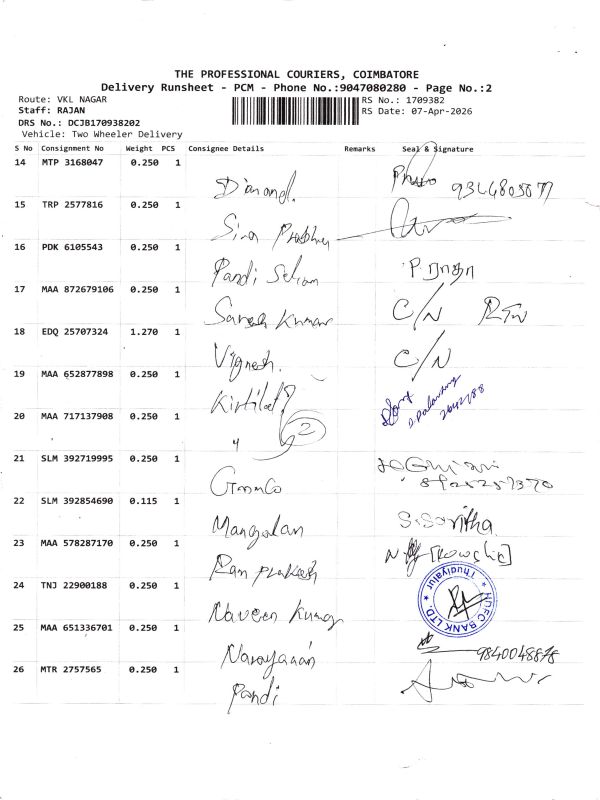 THE PROFESSIONAL COURIERS, COIMBATORE
Delivery Runsheet - PCM - Phone No.:9047080280 - Page No.:2
Route: VKL NAGAR RS No.: 1709382
Staff: RAJAN RS Date: 07-Apr-2026
DRS No.: DCJB170938202
Vehicle: Two Wheeler Delivery
S No Consignment No Weight PCS Consignee Details Remarks Seal & Signature
14 MTP 3168047 0.250 1
Diamond.
15 TRP 2577816 0.250 1
Siva Prabhu
16 PDK 6105543 0.250 1
Pandi Selvam P. ராதா
17 MAA 872679106 0.250 1
Suresh Kumar C/N
18 EDQ 25707324 1.270 1
Vignesh. C/N
19 MAA 652877898 0.250 1
20 MAA 717137908 0.250 1
2
21 SLM 392719995 0.250 1
22 SLM 392854690 0.115 1
Mangalan
23 MAA 578287170 0.250 1
Ram prakash [Kowshic]
24 TNJ 22900188 0.250 1
Naveen Kumar
HDFC BANK LTD. * Thudiyalur *
25 MAA 651336701 0.250 1
Narayanan 9840048878
26 MTR 2757565 0.250 1
Pandi